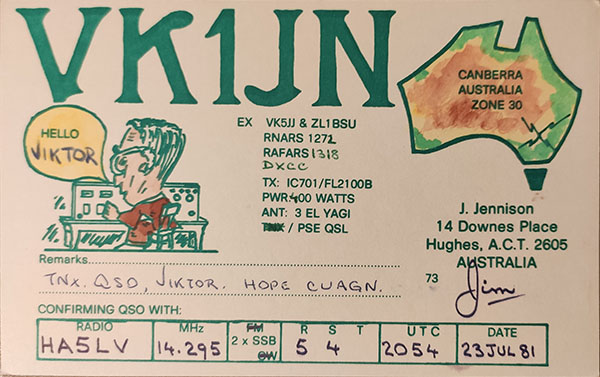 VK1JN
HELLO
VIKTOR
CANBERRA
AUSTRALIA
ZONE 30
EX VK5JJ & ZL1BSU
RNARS 1272
RAFARS 1318
DXCC
TX: IC701/FL2100B
PWR: 400 WATTS
ANT: 3 EL YAGI
TNX / PSE QSL
J. Jennison
14 Downes Place
Hughes, A.C.T. 2605
AUSTRALIA
Remarks
TNX. QSO, VIKTOR. HOPE CUAGN.
73 Jim
CONFIRMING QSO WITH:
RADIO MHz FM R S T UTC DATE
HA5LV 14.295 2 x SSB 5 4 2054 23 JUL 81
CW